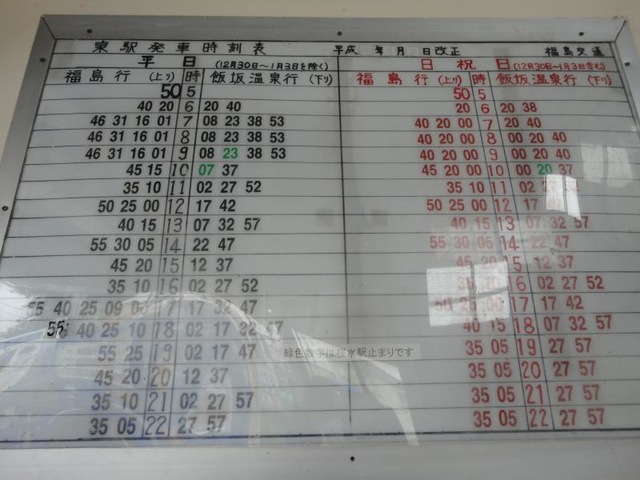 東駅発車時刻表 平成 年 月 日改正 福島交通
平日 (12月30日〜1月3日を除く) 日祝日 (12月30日〜1月3日含む)
福島行 (上り) 時 飯坂温泉行 (下り) 福島行 (上り) 時 飯坂温泉行 (下り)
50 5 50 5
40 20 6 20 40 20 6 20 38
46 31 16 01 7 08 23 38 53 40 20 00 7 20 40
46 31 16 01 8 08 23 38 53 40 20 00 8 00 20 40
46 31 16 01 9 08 23 38 53 40 20 00 9 00 20 40
45 15 10 07 37 45 20 00 10 00 20 37
35 10 11 02 27 52 35 05 11 02 27 52
50 25 00 12 17 42 50 25 00 12 17 42
40 15 13 07 32 57 40 15 13 07 32 57
55 30 05 14 22 47 55 30 05 14 22 47
45 20 15 12 37 45 20 15 12 37
35 10 16 02 27 52 35 10 16 02 27 52
55 40 25 09 00 17 17 32 47 50 25 00 17 17 42
55 40 25 10 18 02 17 32 57 40 15 18 07 32 57
55 25 19 02 17 47 35 05 19 27 57
緑色数字は桜水駅止まりです
45 20 20 12 37 35 05 20 27 57
35 10 21 02 27 57 35 05 21 27 57
35 05 22 27 57 35 05 22 27 57